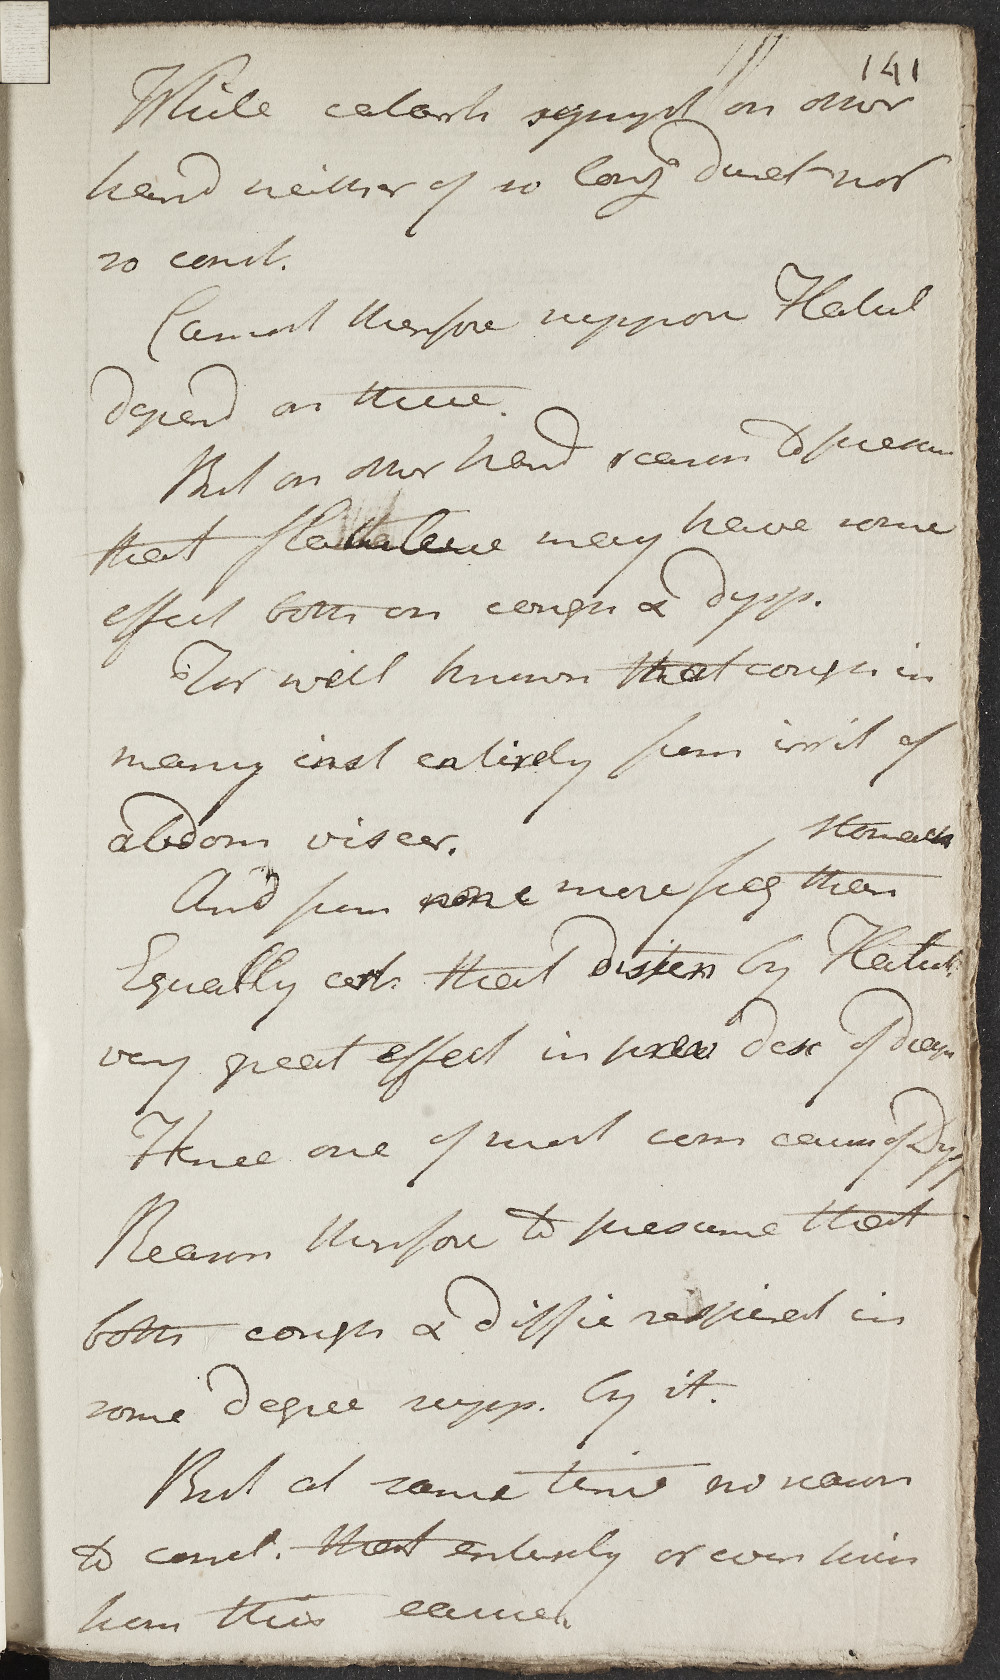 141
While catarrh sympt on other
hand neither of so long durat nor
so const.
Cannot therefore suppose Flatul
depend on these.
But on other hand reason to presum
that flatulence may have some
effect both on cough & dysp.
For well known that cough in
many inst entirely from irrit of
abdom viscer.
stomach
And from none more freq than
Equally cert that disten by Flatul.
very great effect in prev desc of diaph
Hence one of most com causes of Dysp
Reason therefore to presume that
both cough & diffic respirat in
some degree supp. by it.
But at same time no reason
to concl. that entirely or even princ
from this cause.